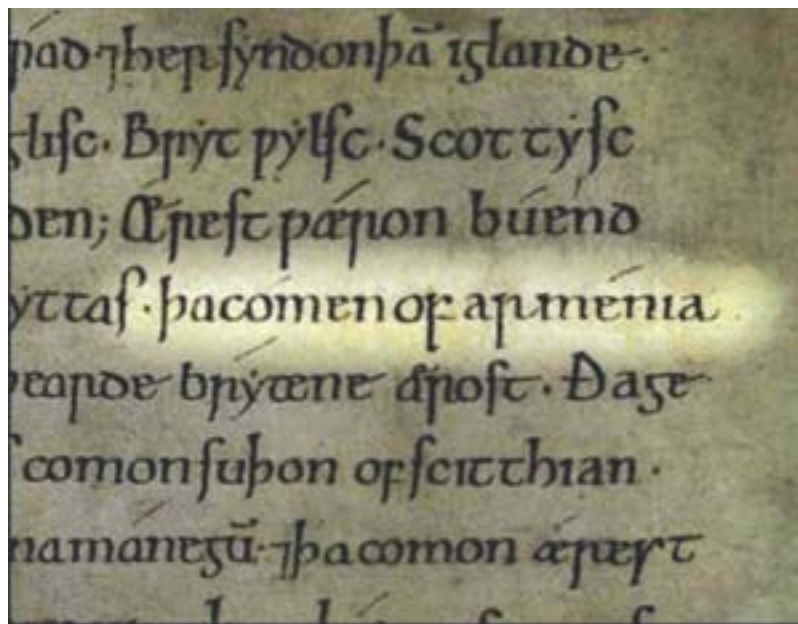 ƿıad·⁊her ſyndon þā ıglande·
gliſc· Brẏt ƿẏlſc· Scottẏſc
den; Ǽreſt ƿǽron búénd
ẏttaſ· þa cómen of arménıa
ƿearde brẏtene ǽroſt· Ða ge
comon ſuþon of ſcıtthıan·
na mánegū· ⁊þa comon ǽrest